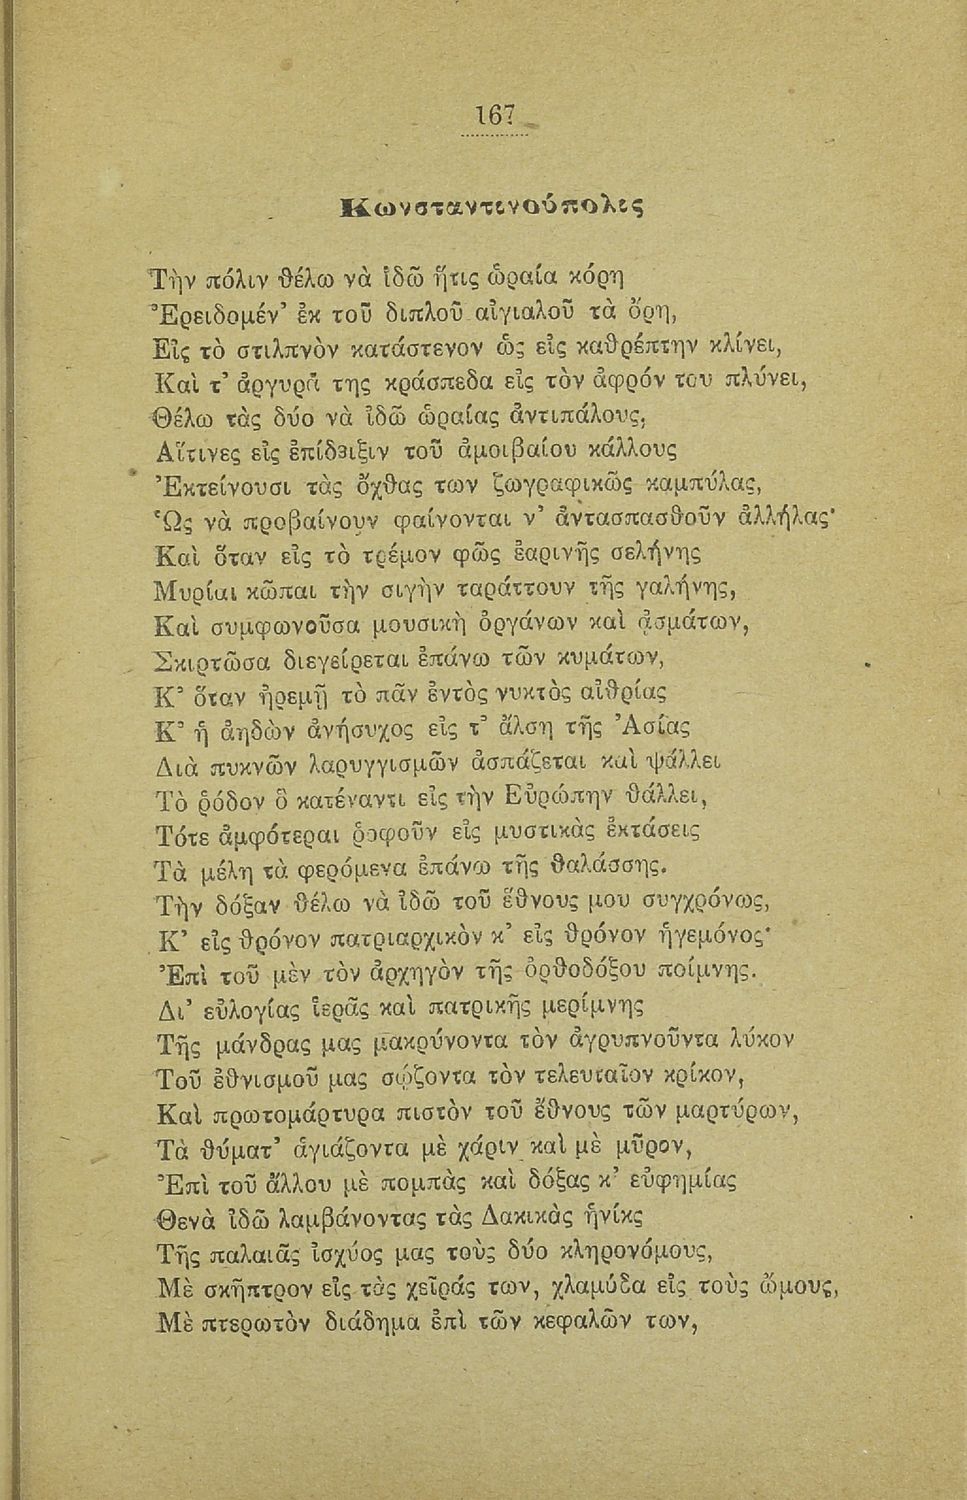 167
Κωνσταντινούπολις
Τὴν πόλιν θέλω νὰ ἰδῶ ἥτις ὡραία κόρη
Ἐρειδομέν’ ἐκ τοῦ διπλοῦ αἰγιαλοῦ τὰ ὄρη,
Εἰς τὸ στιλπνὸν κατάστενον ὡς εἰς καθρέπτην κλίνει,
Καὶ τ’ ἀργυρᾶ της κράσπεδα εἰς τὸν ἀφρόν του πλύνει,
Θέλω τὰς δύο νὰ ἰδῶ ὡραίας ἀντιπάλους,
Αἵτινες εἰς ἐπίδειξιν τοῦ ἀμοιβαίου κάλλους
Ἐκτείνουσι τὰς ὄχθας των ζωγραφικῶς καμπύλας,
Ὡς νὰ προβαίνουν φαίνονται ν’ ἀντασπασθοῦν ἀλλήλας·
Καὶ ὅταν εἰς τὸ τρέμον φῶς ἐαρινῆς σελήνης
Μυρίαι κῶπαι τὴν σιγὴν ταράττουν τῆς γαλήνης,
Καὶ συμφωνοῦσα μουσικὴ ὀργάνων καὶ ᾀσμάτων,
Σκιρτῶσα διεγείρεται ἐπάνω τῶν κυμάτων,
Κ’ ὅταν ἠρεμῇ τὸ πᾶν ἐντὸς νυκτὸς αἰθρίας
Κ’ ἡ ἀηδὼν ἀνήσυχος εἰς τ’ ἄλση τῆς Ἀσίας
Διὰ πυκνῶν λαρυγγισμῶν ἀσπάζεται καὶ ψάλλει
Τὸ ῥόδον ὃ κατέναντι εἰς τὴν Εὐρώπην θάλλει,
Τότε ἀμφότεραι ῥοφοῦν εἰς μυστικὰς ἐκτάσεις
Τὰ μέλη τὰ φερόμενα ἐπάνω τῆς θαλάσσης.
Τὴν δόξαν θέλω νὰ ἰδῶ τοῦ ἔθνους μου συγχρόνως,
Κ’ εἰς θρόνον πατριαρχικὸν κ’ εἰς θρόνον ἡγεμόνος·
Ἐπὶ τοῦ μὲν τὸν ἀρχηγὸν τῆς ὀρθοδόξου ποίμνης.
Δι’ εὐλογίας ἱερᾶς καὶ πατρικῆς μερίμνης
Τῆς μάνδρας μας μακρύνοντα τὸν ἀγρυπνοῦντα λύκον
Τοῦ ἐθνισμοῦ μας σῴζοντα τὸν τελευταῖον κρίκον,
Καὶ πρωτομάρτυρα πιστὸν τοῦ ἔθνους τῶν μαρτύρων,
Τὰ θύματ’ ἁγιάζοντα μὲ χάριν καὶ μὲ μῦρον,
Ἐπὶ τοῦ ἄλλου μὲ πομπὰς καὶ δόξας κ’ εὐφημίας
Θενὰ ἰδῶ λαμβάνοντας τὰς Δακικὰς ἡνίκς
Τῆς παλαιᾶς ἰσχύος μας τοὺς δύο κληρονόμους,
Μὲ σκῆπτρον εἰς τὰς χεῖράς των, χλαμύδα εἰς τοὺς ὤμους,
Μὲ πτερωτὸν διάδημα ἐπὶ τῶν κεφαλῶν των,